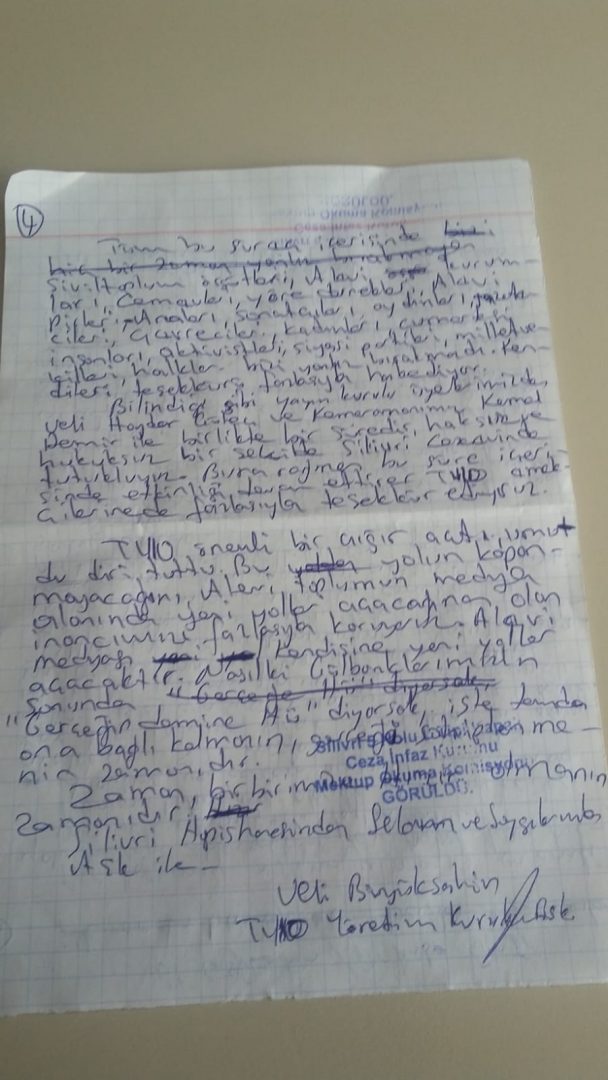 4
GÖRÜLDÜ.
Tüm bu süreç içerisinde bizi
hiç bir zaman yalnız bırakmayan
Sivil toplum örgütleri, Alevi kurum-
ları, Cemevleri, yöre dernekleri, Alevi
Pirler, Anaları, sanatçıları, aydınları,
cileri, Çevreciler, kadınları,
insanları, aktivistleri, siyasi partileri, milletve-
killeri, halklar bizi yalnız bırakmadı. Ken-
dileri, teşekkürü fazlasıyla hakediyor.
Bilindiği gibi yayın kurulu üyelerimizden
Veli Haydar Güleç ve Kameramanımız Kemal
Demir ile birlikte bir süredir, haksız ve
hukuksuz bir şekilde Silivri Cezaevinde
tutukluyuz. Buna rağmen bu süre içeri-
sinde etkinliği devam ettiren TV10 emek-
çilerine de fazlasıyla teşekkür ediyoruz.
TV10 önemli bir çığır açtı, umut
du diri tuttu. Bu yolun kapan-
mayacağını, Alevi toplumun medya
alanında yeni yollar açacağına olan
inancımızı fazlasıyla koruyoruz. Alevi
medyası kendisine yeni yollar
açacaktır. Nasılki Gülbanklarımızın
sonunda "Gerçeğe Hü" diyorsak,
"Gerçeğin demine Hü" diyorsak, işte tamda
ona bağlı kalmanın, sahiplenme-
nin zamanıdır.
Silivri
Ceza İnfaz Kurumu
Mektup Okuma Komisyonu
GÖRÜLDÜ.
Zaman, olmanın
zamanıdır.
Silivri Hapishanesinden Selam ve Saygılarımla
Aşk ile -
Veli Büyükşahin
TV10 Yönetim Kurulu Bşk.